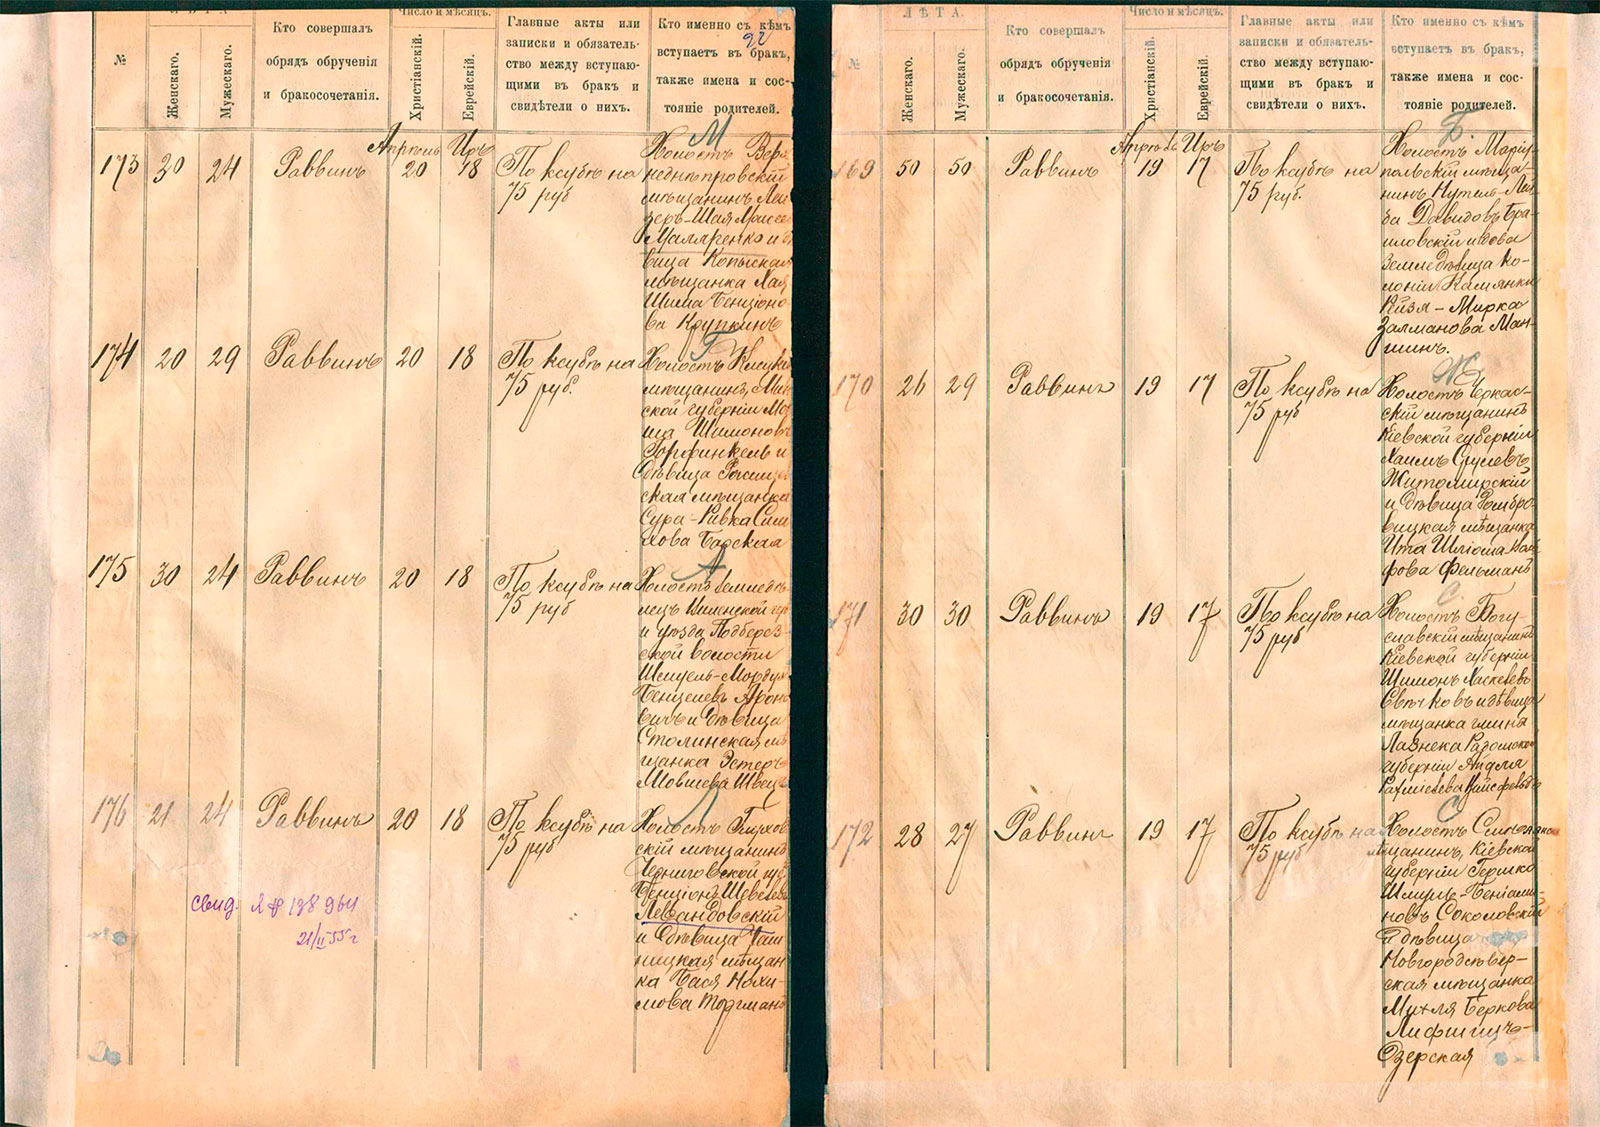 ЛѢТА.
Число и мѣсяцъ.
№
Женскаго.
Мужескаго.
Кто совершалъ
обрядъ обрученія
и бракосочетанія.
Христіанскій.
Еврейскій.
Главные акты или
записки и обязатель-
ство между вступаю-
щими въ бракъ и
свидѣтели о нихъ.
Кто именно съ кѣмъ
22
вступаетъ въ бракъ,
также имена и сос-
тояніе родителей.
М
173 30 24 Раввинъ Апрѣль 20 Иръ 18
По ксубѣ на
75 руб
Холостъ Верх
неднѣпровскій
мѣщанинъ Лей
зеръ-Шая Мовсе
Маляренко и дѣ
вица Копыская
мѣщанка Хая
Шима Бенціоно
ва Крупкинъ
Г
174 20 29 Раввинъ 20 18
По ксубѣ на
75 руб.
Холостъ
мѣщанинъ, Мин
ской губерніи Мов
ша Шимоновъ
Горфинкель и
дѣвица
ская мѣщанка
Сура-Ривка Сим
хова Барская
А
175 30 24 Раввинъ 20 18
По ксубѣ на
75 руб
Холостъ
Виленской губ
и уѣзда Подберез-
ской волости
Шмуель-Мордух
Бенцелевъ Ароно
вичъ и дѣвица
Столинская мѣ
щанка Эстеръ
Мовшева Швецъ
Л
176 21 24 Раввинъ 20 18
По ксубѣ на
75 руб
Холостъ Глухов
скій мѣщанинъ
Черниговской губ
Бенціонъ Шевелевъ
Левандовскій
и дѣвица Чаш
ницкая мѣщан
ка Бася Нохи-
мова
свид. Я Ф 198961
21/II 55 г
ЛѢТА.
Число и мѣсяцъ.
№
Женскаго.
Мужескаго.
Кто совершалъ
обрядъ обрученія
и бракосочетанія.
Христіанскій.
Еврейскій.
Главные акты или
записки и обязатель-
ство между вступаю-
щими въ бракъ и
свидѣтели о нихъ.
Кто именно съ кѣмъ
вступаетъ въ бракъ,
также имена и сос-
тояніе родителей.
Б.
169 50 50 Раввинъ Апрѣль 19 Иръ 17
По ксубѣ на
75 руб.
Холостъ Мариу-
польскій мѣща-
нинъ Нутель-Лей
ба Давидовъ Бра-
иловскій и вдова
Земледѣлица ко-
лоніи Камянки
Кизя-Мирка
Залманова Ман-
шинъ.
Ж
170 26 29 Раввинъ 19 17
По ксубѣ на
75 руб
Холостъ Черкас-
скій мѣщанинъ
Кіевской губерніи
Хаимъ Срулевъ
Житомирскій
и дѣвица Домбро-
вицкая мѣщанка
Ита
Фельманъ
С.
171 30 30 Раввинъ 19 17
По ксубѣ на
75 руб
Холостъ Богу-
славскій мѣщанинъ
Кіевской губерніи
Шимонъ Хаскелевъ
Свѣчковъ и дѣвица
мѣщанка гмина
Лазнека Радомской
губерніи
С
172 28 27 Раввинъ 19 17
По ксубѣ на
75 руб
Холостъ
мѣщанинъ, Кіевской
губерніи Гершко
Шмуль-Беніами-
новъ Соколовскій
и дѣвица
Новгородсѣвер-
ская мѣщанка
Михля Беркова
Лифшицъ-
Озерская